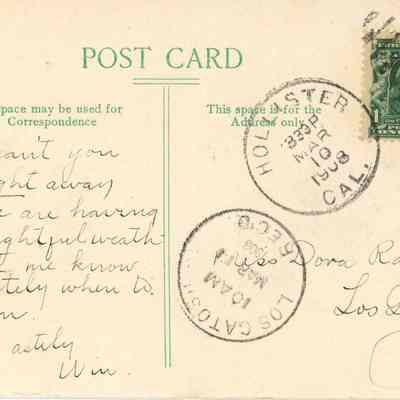 POST CARD
space may be used for
Correspondence
This space is for the
Address only
can't you
right away
are having
delightful weath-
me know
when to

astily
Win.
HOLLISTER
CAL.
330 P
MAR
10
1908
LOS GATOS
REC'D.
10 AM
MAR 11
1908
Miss Dora Ra
Los G
1